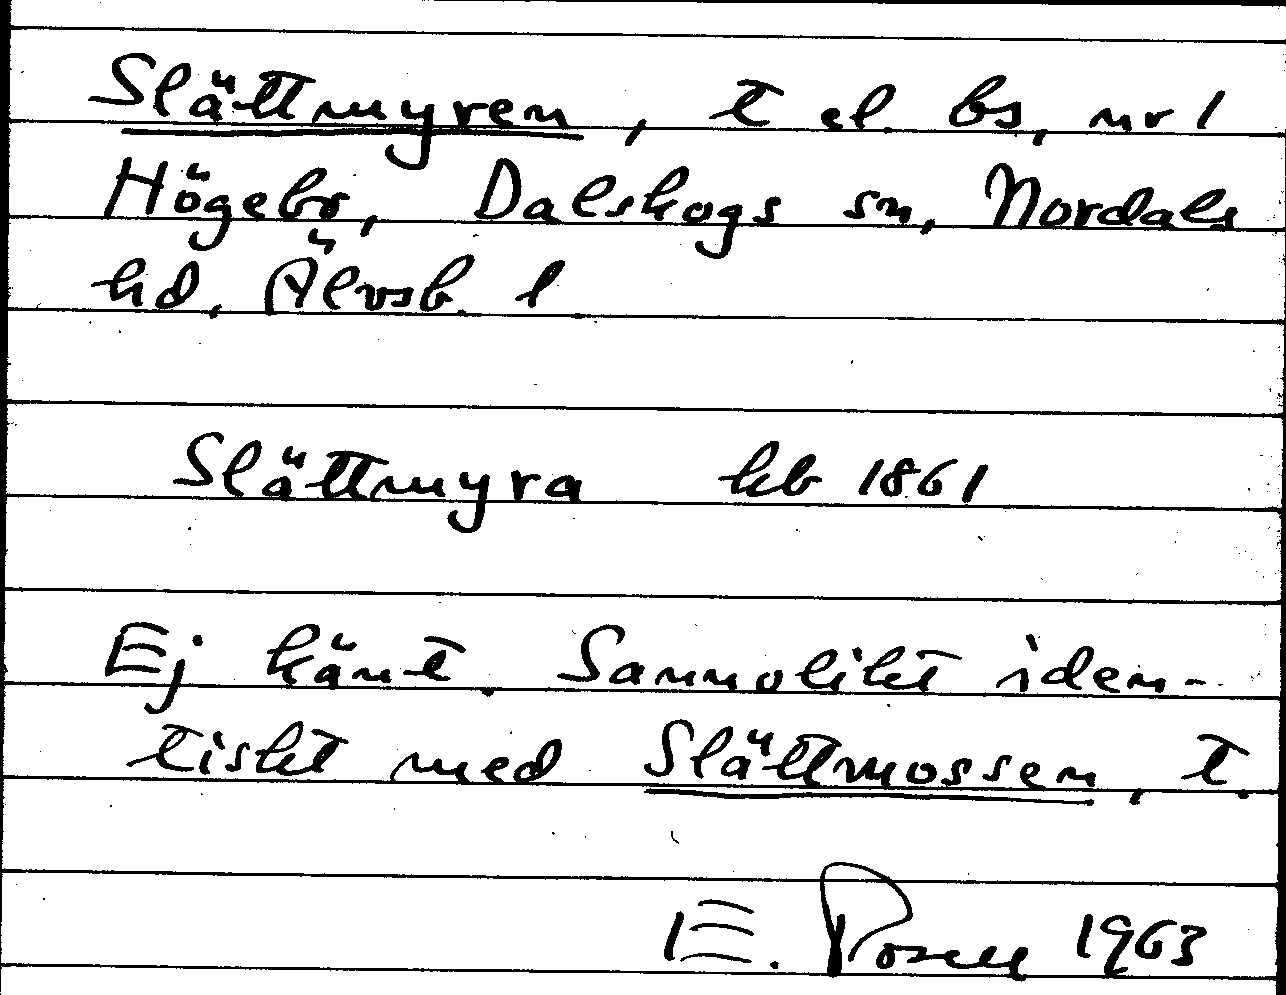 Slättmyren, t el. bs, nr 1
Högebo, Dalskogs sn, Nordals
hd. Älvsb. l
Slättmyra hb 1861
Ej känt. Sannolikt iden-
tiskt med Slättmossen, t.
E. 1963